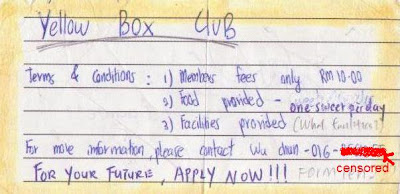 Yellow Box Club
Terms & Conditions : 1) Members fees only RM 10.00
2) Food provided - one sweet per day
3) Facilities provided (What facilities?)
For more information, please contact Wu chun -016-
censored
FOR YOUR FUTURE, APPLY NOW!!!